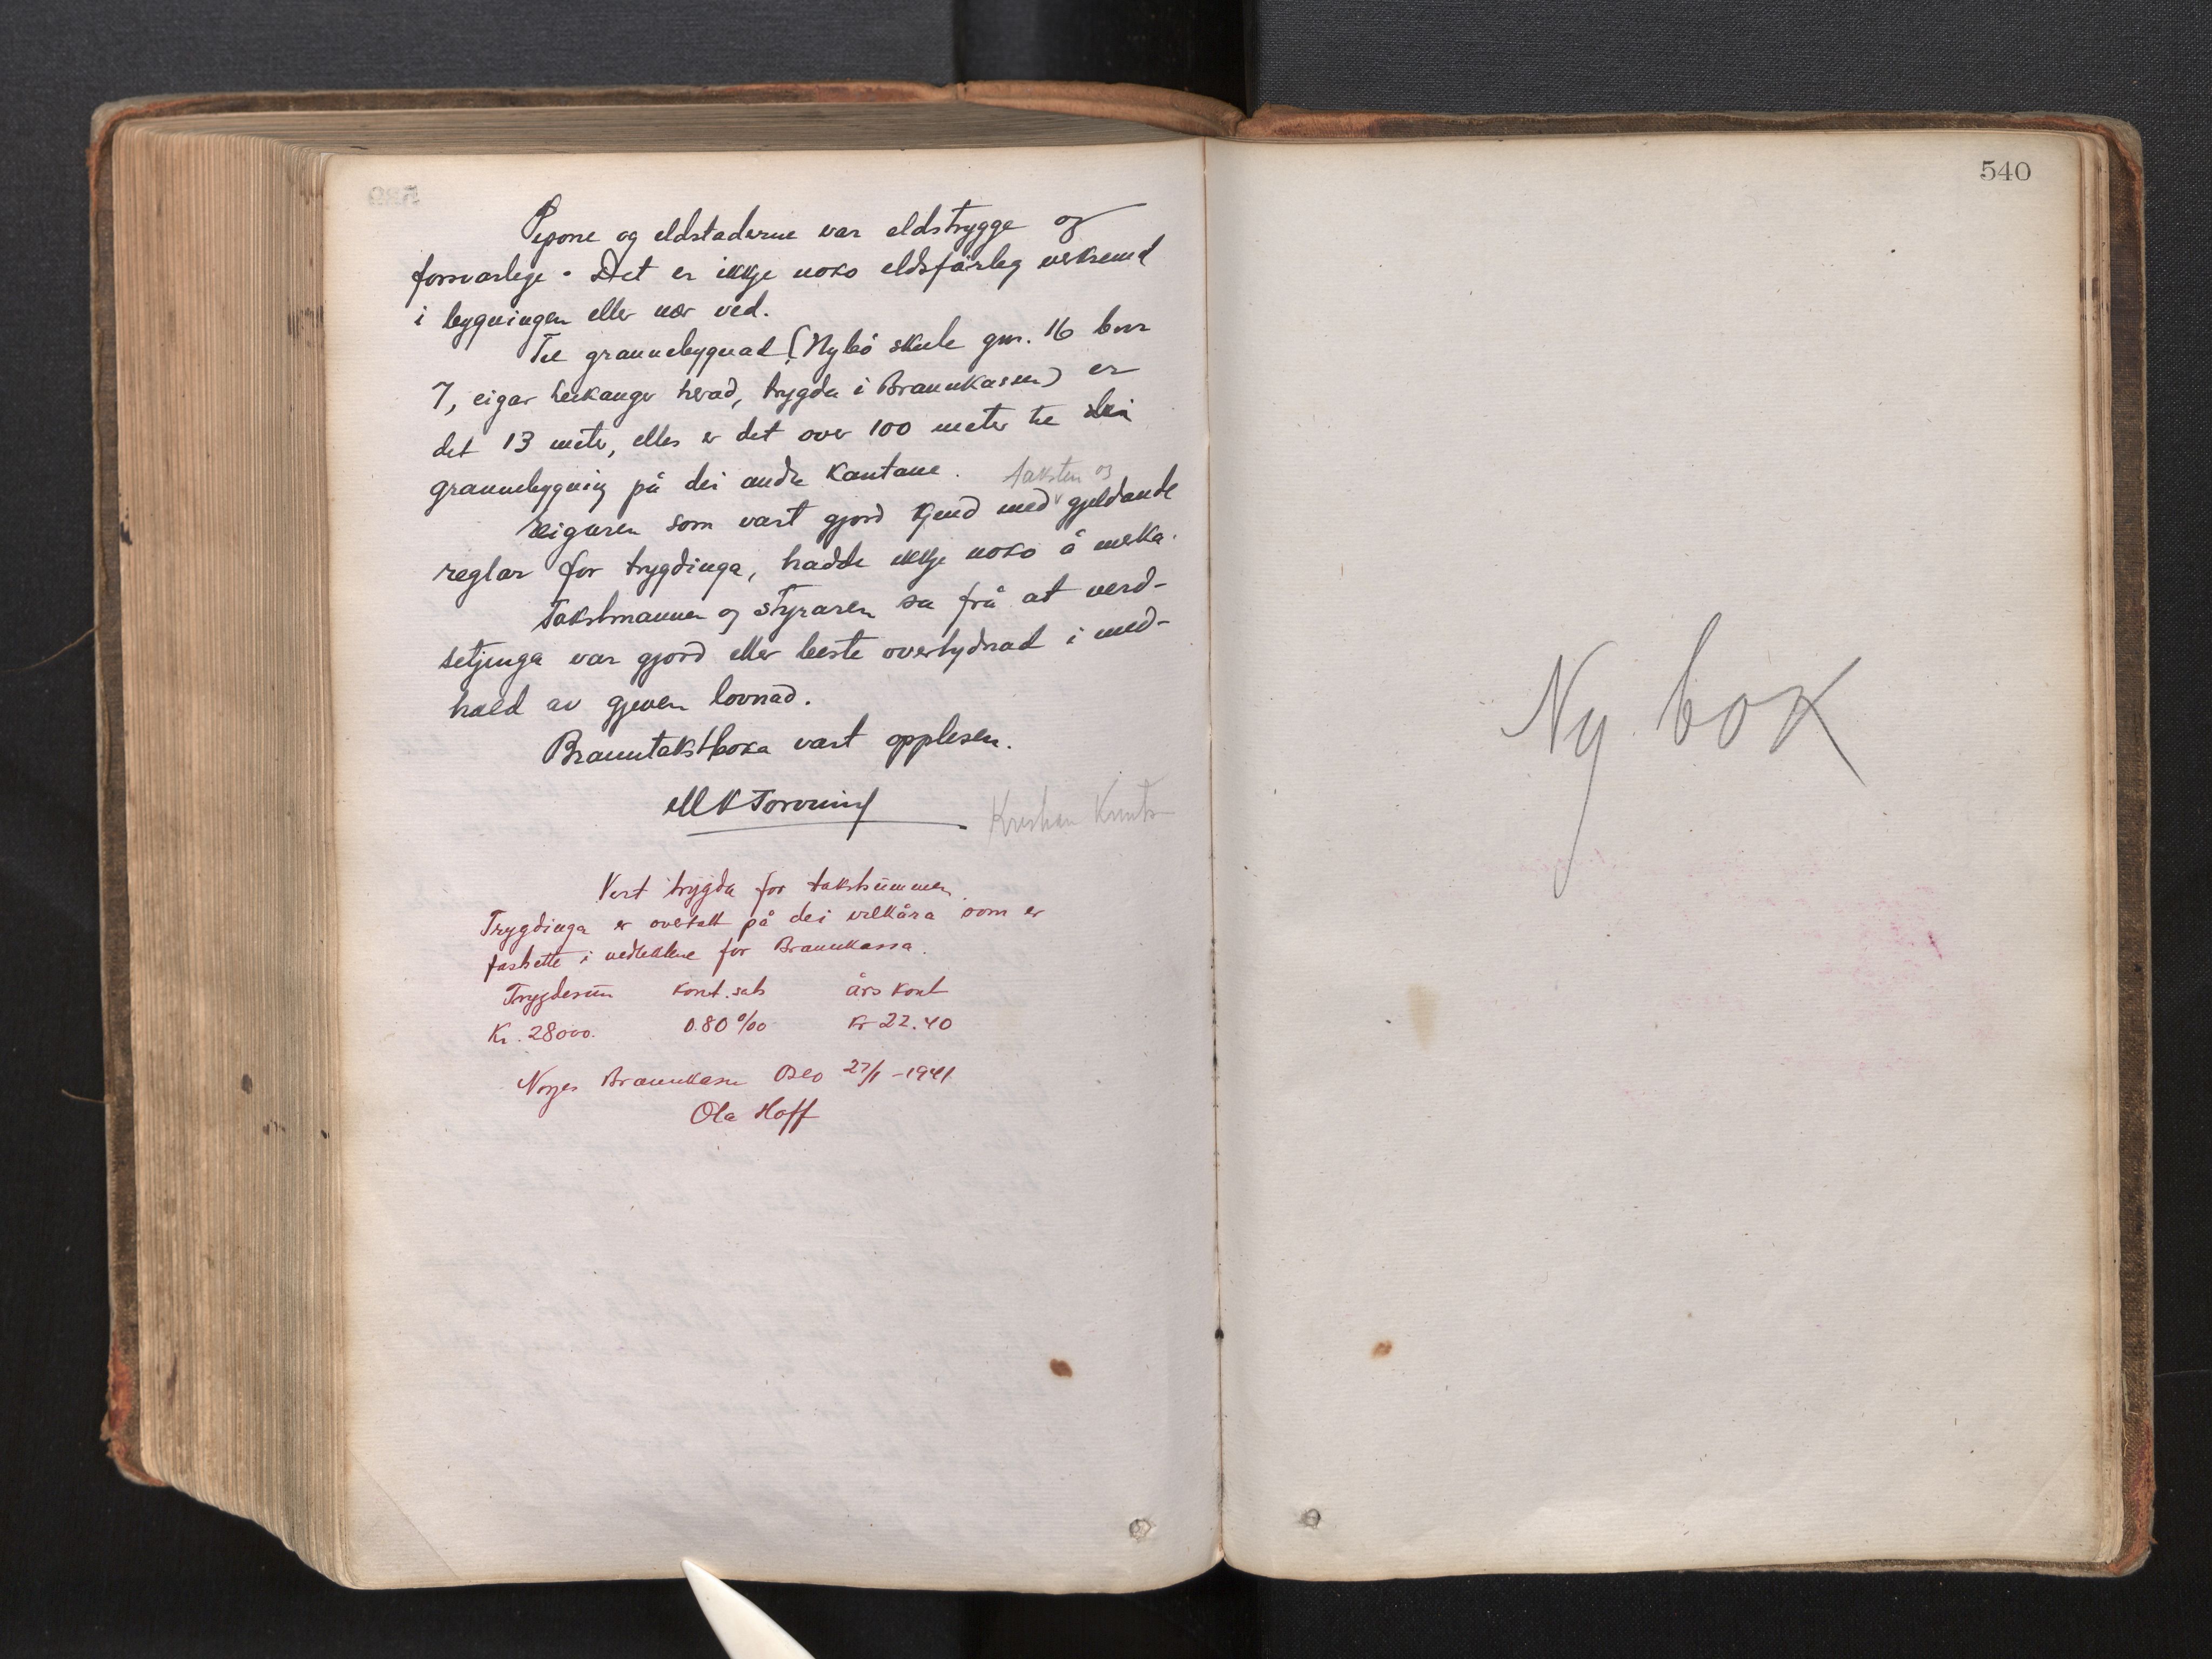 Pipone og eldstaderne var eldstrygge og
forsvarlege. Det er ikkje noko eldsfårleg verksemd
i bygningen eller nær ved.
Til grannebygnad (Nybö skule gnr. 16 bnr
7, eigar Leikanger herad, trygda i Brannkassen) er
det 13 meter, elles er det over 100 meter til
grannebygning på dei andre kantane.
taksten og
Eigaren som vart gjord kjend med gjeldande
reglar for trygdinga, hadde ikkje noko å merka.
Takstmannen og styraren sa frå at verd-
setjinga var gjord etter beste overtydnad i med-
hald av gjeven lovnad.
Branntakstboka vart opplesen.
Vert trygda for takstsummen.
Trygdinga er overtatt på dei vilkåra som er
fastsette i vedtektene for Brannkassa.
Trygdesum kont. sats års kont
Kr. 28000. 0.80 ‰ Kr 22.40
Norges Brannkasse Oslo 27/1 - 1941
Ola Hoff
540
Ny bok